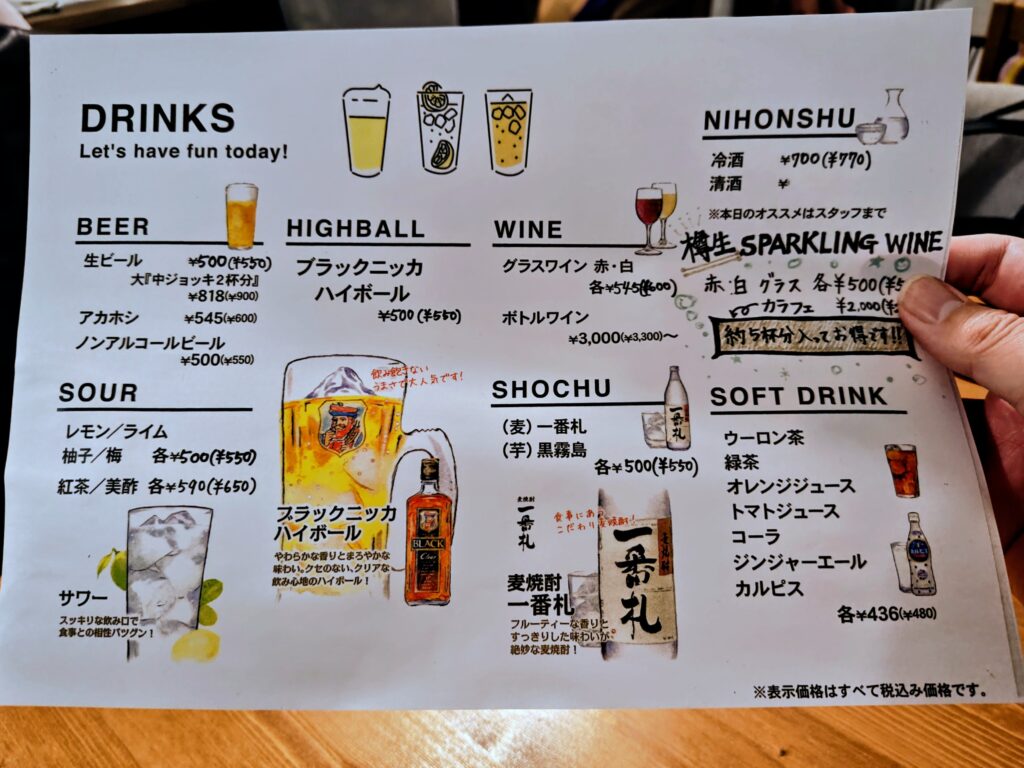 DRINKS
Let's have fun today!
BEER
生ビール ¥500(¥550)
大『中ジョッキ2杯分』
¥818(¥900)
アカホシ ¥545(¥600)
ノンアルコールビール
¥500(¥550)
SOUR
レモン／ライム
柚子／梅 各¥500(¥550)
紅茶／美酢 各¥590(¥650)
サワー
スッキリな飲み口で
食事との相性バツグン！
HIGHBALL
ブラックニッカ
ハイボール
¥500(¥550)
飲み飽きない
うまさで大人気です!
ブラックニッカ
ハイボール
やわらかな香りとまろやかな
味わい。クセのない、クリアな
飲み心地のハイボール！
BLACK
Clear
WINE
グラスワイン 赤・白
各¥545(¥600)
ボトルワイン
¥3,000(¥3,300)～
SHOCHU
（麦）一番札
（芋）黒霧島
各¥500(¥550)
一番札
麦焼酎
一番札
食事にあう
こだわり麦焼酎!
一番札
麦焼酎
麦焼酎
一番札
フルーティーな香りと
すっきりした味わいが
絶妙な麦焼酎！
NIHONSHU
冷酒 ¥700(¥770)
清酒 ¥
※本日のオススメはスタッフまで
樽生 SPARKLING WINE
赤・白 グラス 各¥500(¥5
カラフェ ¥2,000(¥
約5杯分入ってお得です!!
SOFT DRINK
ウーロン茶
緑茶
オレンジジュース
トマトジュース
コーラ
ジンジャーエール
カルピス
各¥436(¥480)
※表示価格はすべて税込み価格です。